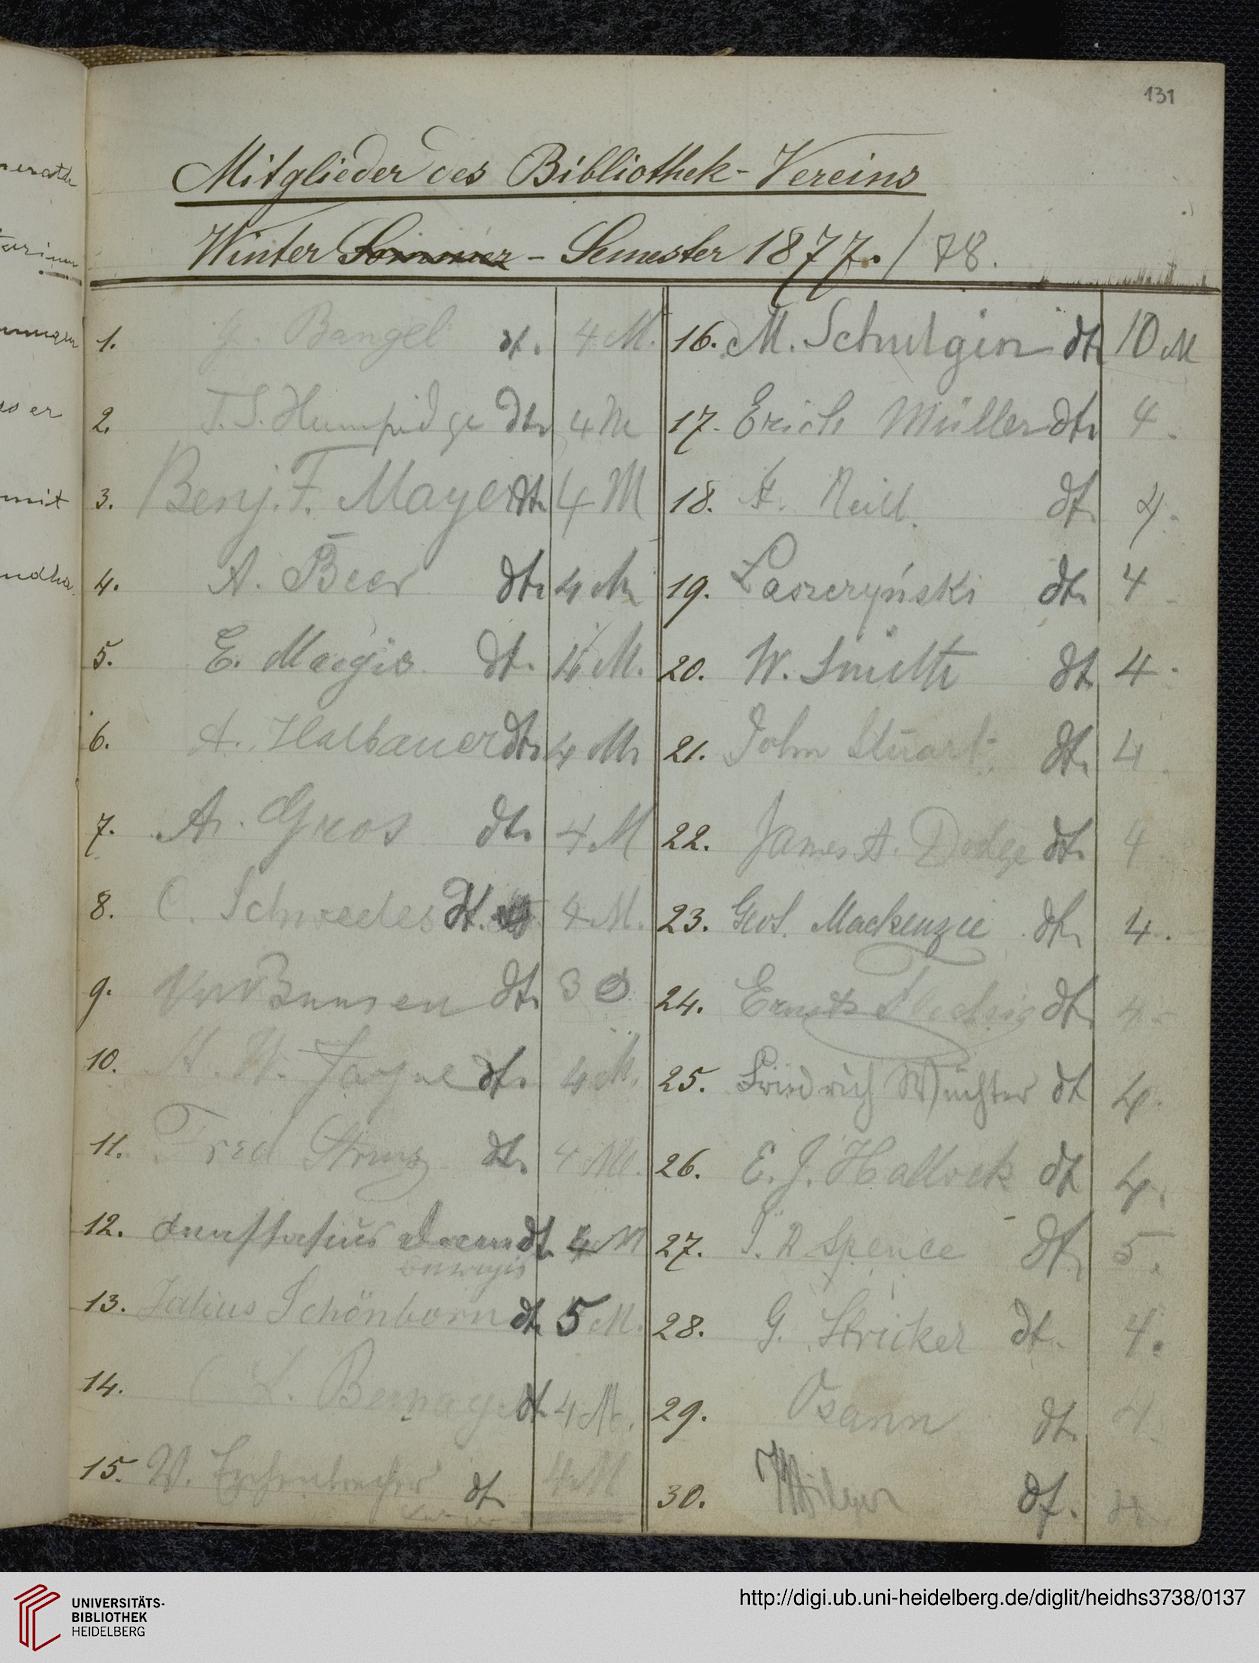 131
Mitglieder des Bibliothek-Vereins
Winter Sommer - Semester 1877./78.
1. G. Bangel dt. 4 M.
2. T. S. Humpidge dt. 4 M
3. Benj. F. Mayer dt. 4 M
4. A. Beer dt. 4 M
5. E. Magis dt. 4 M.
6. A. Halbauer dt. 4 M.
7. A. Gros dt. 4 M
8. C. Schwedes dt. 4 M.
9. Bunsen dt. 3
10. H. W. Jayne dt. 4 M.
11. Fred Strunz dt. 4 M.
12. dt. 4 M
13. Julius Schönborn dt. 5 M.
14. L. Bernays dt. 4 M.
15. W. dt 4 M
16. M. Schulgin dt. 10 M
17. Erich Müller dt. 4.
18. Neill dt. 4.
19. Laszczyński dt. 4
20. W. Smith dt. 4.
21. John Stuart dt. 4.
22. James A. Dodge dt. 4
23. Mackenzie dt. 4.
24. Ernst dt. 4.
25. Friedrich Wüchter dt 4.
26. E. J. Hallock dt 4.
27. J. R. Spence dt. 5.
28. G. Stricker dt. 4.
29. Osann dt. 4.
30. dt.
UNIVERSITÄTS-
BIBLIOTHEK
HEIDELBERG
http://digi.ub.uni-heidelberg.de/diglit/heidhs3738/0137